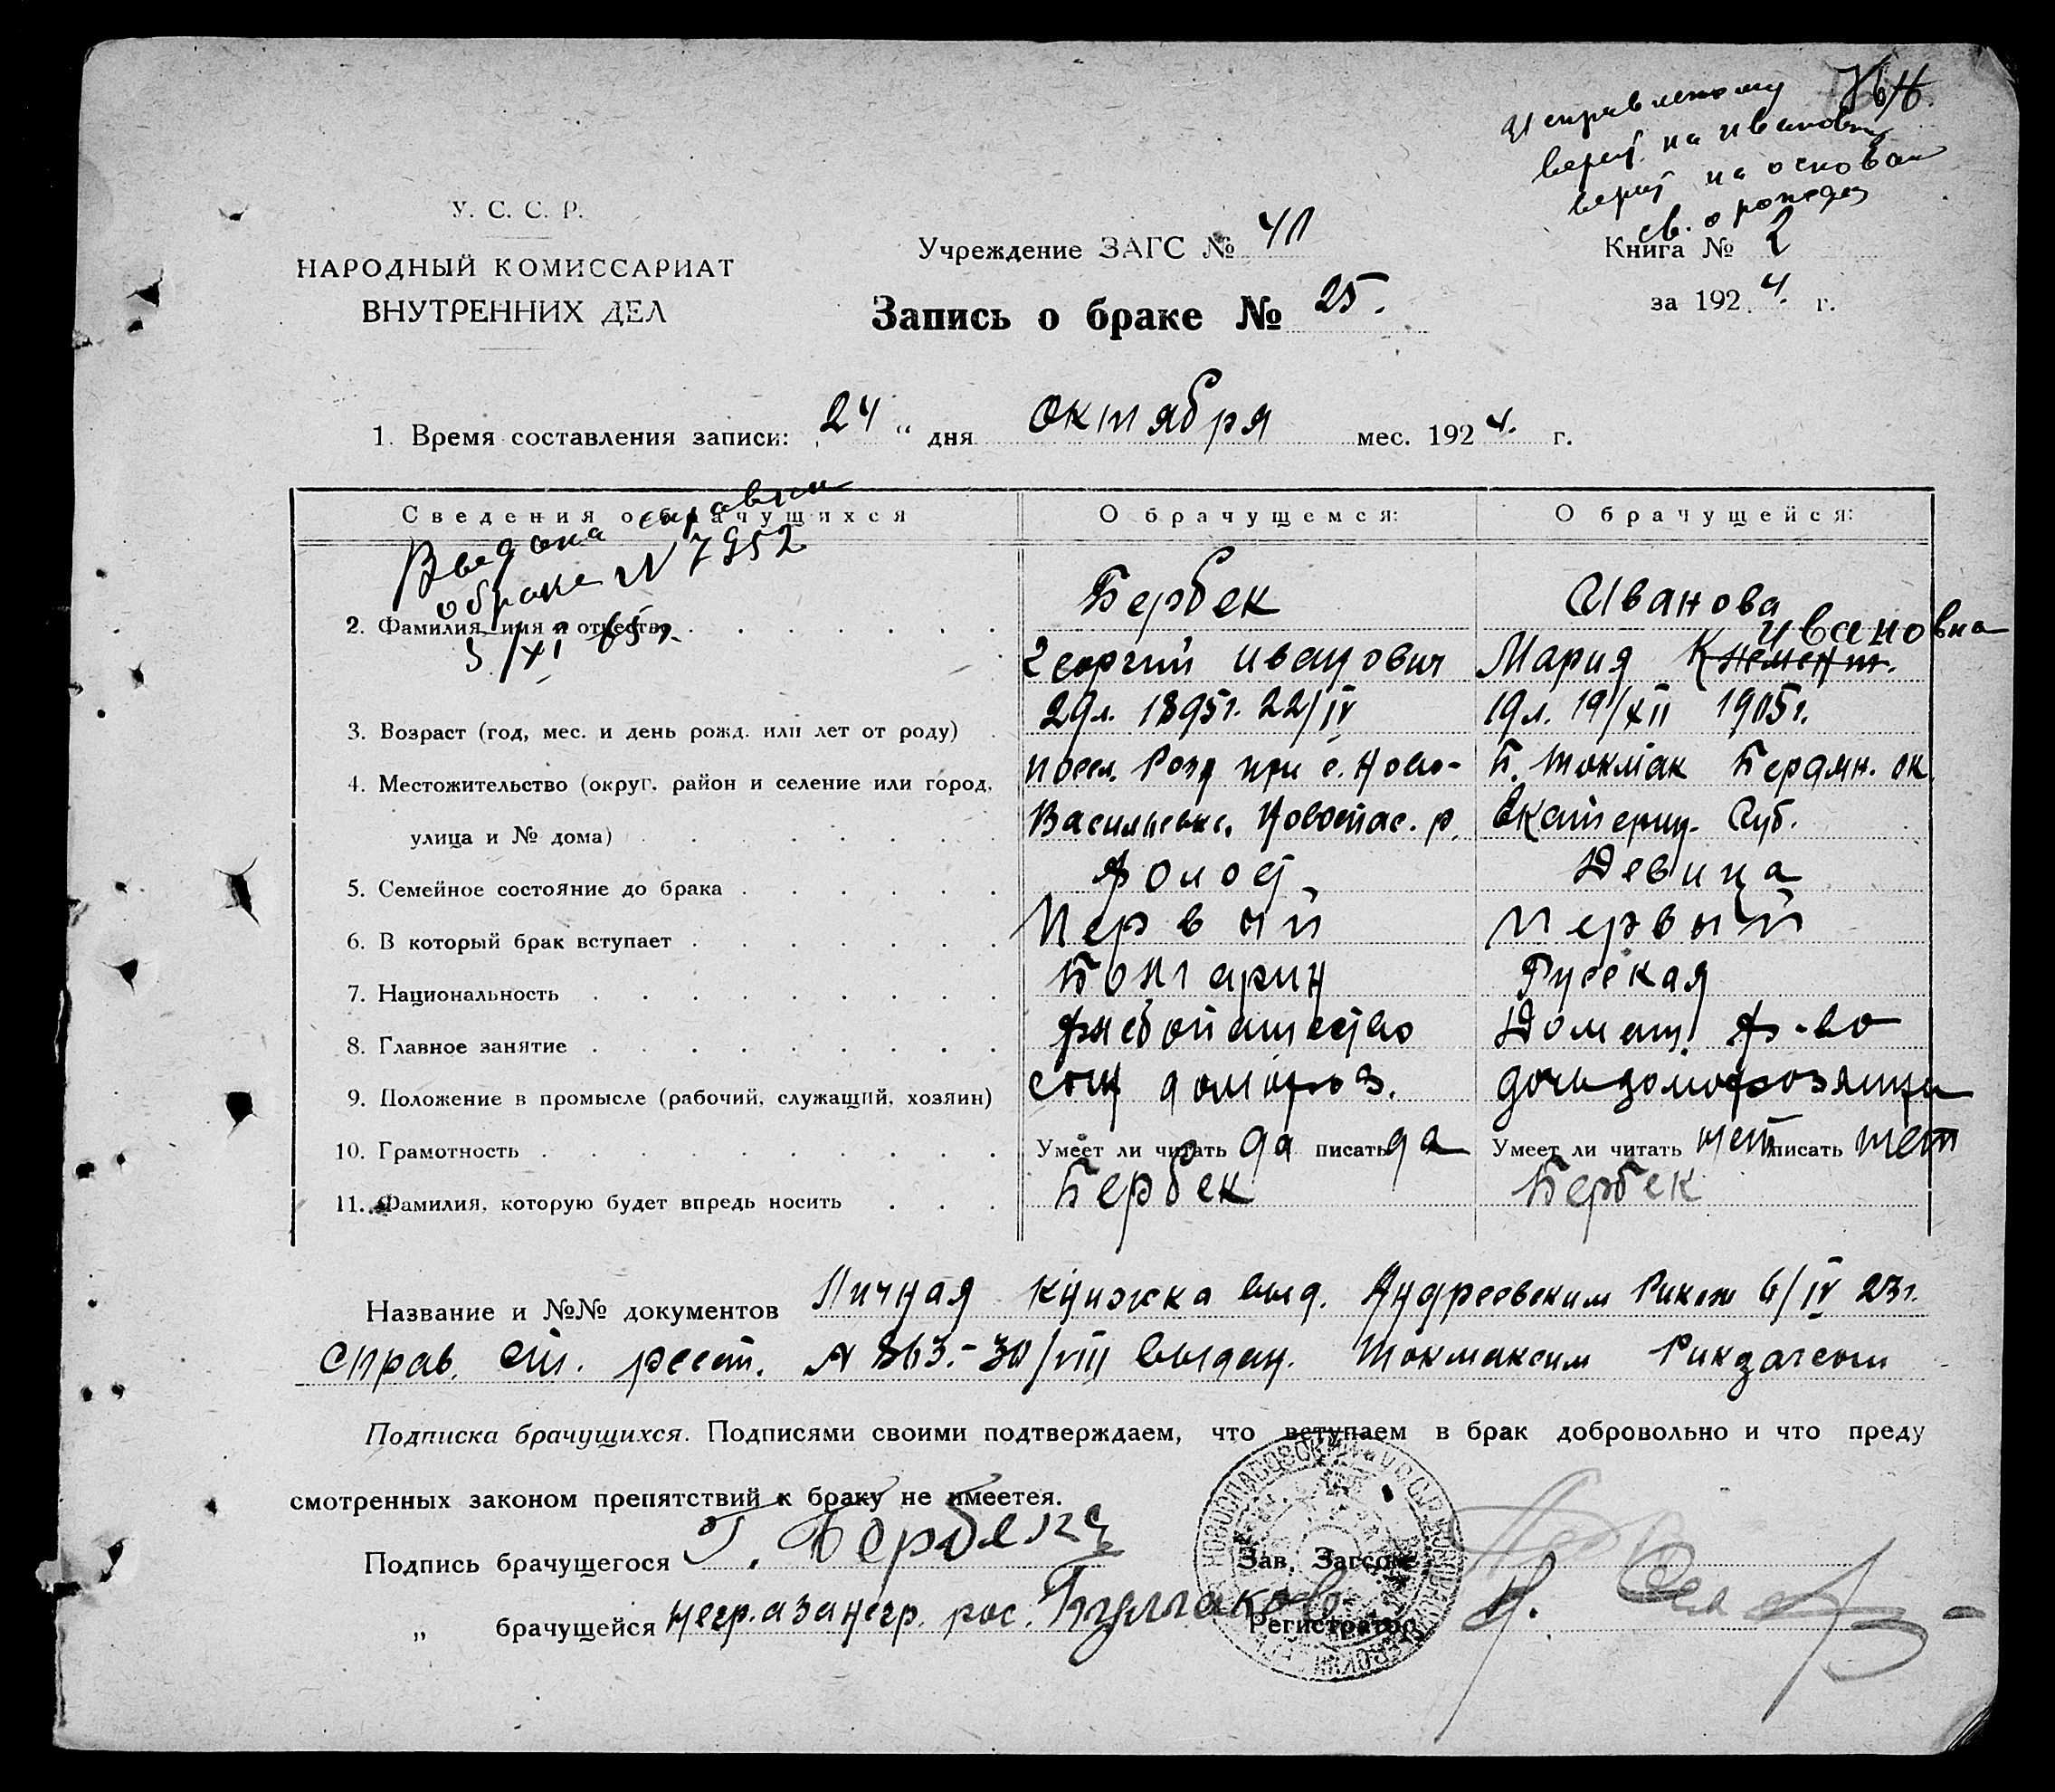 Исправленому
верить на Ивановну
верить на основан
св. о рожден
У. С. С. Р.
НАРОДНЫЙ КОМИССАРИАТ
ВНУТРЕННИХ ДЕЛ
Учреждение ЗАГС №
Книга № 2
Запись о браке № 25.
за 1924. г.
1. Время составления записи: 24 " дня октября мес. 1924. г.
Сведения о брачущихся О брачущемся: О брачущейся:
справка
о браке N 7952
5/XI 65 г.
Бербек Иванова
2. Фамилия, имя и отчество
Ивановна
Георгий Иванович Мария Климент.
3. Возраст (год, мес. и день рожд. или лет от роду) 29 л. 1895 г. 22/IV 19 л. 19/XII 1905 г.
4. Местожительство (округ, район и селение или город, посел. Роза при с. Ново- Б. Токмак Бердян. ок.
улица и № дома) Васильевке, Новоспас. р. Екатерин. Губ.
5. Семейное состояние до брака Холост, Девица
6. В который брак вступает Первый Первый
7. Национальность Болгарин Русская
8. Главное занятие хлебопашество Домаш. х-во
9. Положение в промысле (рабочий, служащий, хозяин) сын домохоз. дочь домохозяина
10. Грамотность Умеет ли читать да писать да Умеет ли читать нет писать нет
11. Фамилия, которую будет впредь носить Бербек Бербек
Название и №№ документов Личная книжка выд. Андреевским Риком 6/IV 23 г.
Справ. реест. N 863.-30/VIII выдан. Токмакским
Подписка брачущихся. Подписями своими подтверждаем, что вступаем в брак добровольно и что преду
смотренных законом препятствий к браку не имеетея.
Подпись брачущегося Г. Бербека Зав. Загсом
„ брачущейся негр. а за негр. рос. Булгаков Регистратор